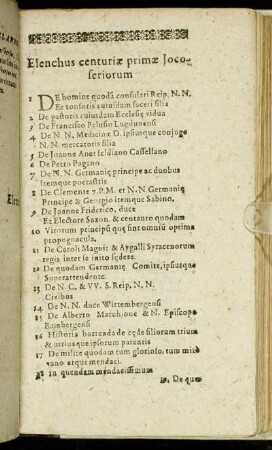 Elenchus centuriæ primæ Joco-
seriorum
1 DE homine quodā consulari Reip. N. N.
Et tonsoris eiusdam faceti filia
2 De pastoris cuiusdam Ecclesię vidua
3 De Francisco Pelusio Lugdunensi
4 De N. N. Medicinæ D. ipsiusque conjuge
N N. mercatoris filia
5 De Joanne Anet Icldiano Cassellano
6 De Petro Pagano
7 De N. N. Germanię principe ac duobus
itemque poetastris
8 De Clemente 7. P. M. et N. N. Germanię
Principe & Georgio itemque Sabino,
9 De Joanne Friderico, duce
Et Electore Saxon. & centauro quodam
10 Virorum principū quę sint omniū optima
propugnacula.
11 De Caroli Magni & Aygalli Syracenorum
regis inter se inito fędere.
12 De quodam Germanię Comite, ipsiusque
Superattendente.
13 De N. C. & VV. S. Reip. N, N.
Civibus
14 De N. N. duce Wirtembergensi
15 De Alberto Marchione & N. Episcopo
Bambergensi
16 Historia horrenda de cęde filiorum trium
& utriusque ipsorum parentis
17 De milite quodam tum glorioso, tum mire
vano atque mendaci.
18 In quendam mendacissimum
19. De quo